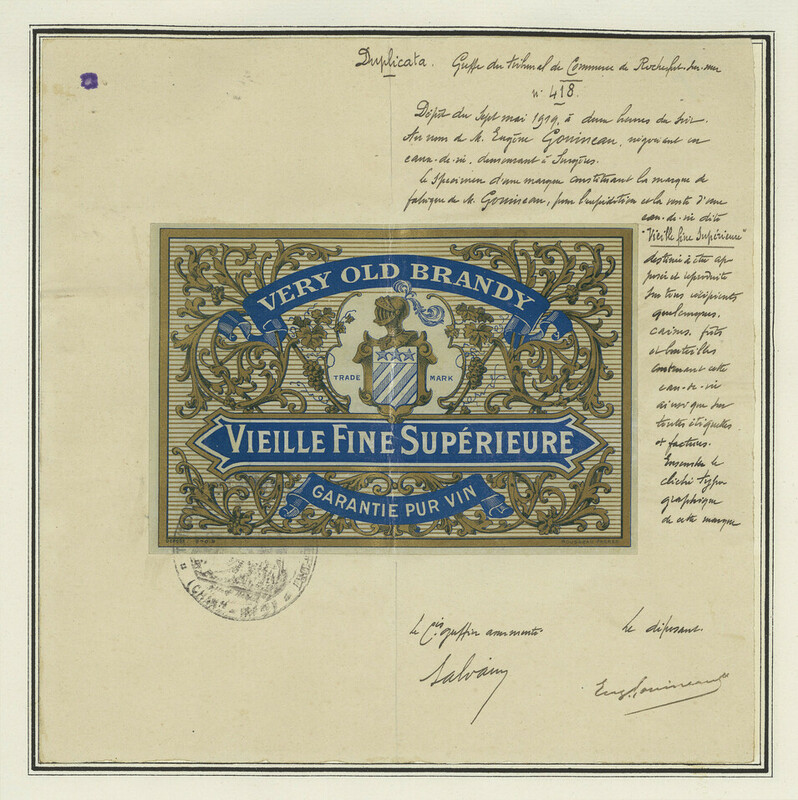 Duplicata. Greffe du tribunal de Commerce de Rochefort-sur-mer
n° 418.
Dépôt du Sept mai 1919, à deux heures du soir.
Au nom de M. Eugène Gouineau, négociant en
eaux-de-vie, demeurant à Surgères.
le Spécimen d'une marque constituant la marque de
fabrique de M. Gouineau, pour l'expédition et la vente d'une
eau-de-vie dite
"Vieille fine Supérieure"
destinée à être ap
posée et reproduite
sur tous récipients
quelconques,
caisses, fûts
et bouteilles
contenant cette
eau-de-vie
ainsi que sur
toutes étiquettes
et factures.
Ensemble le
cliché typo
graphique
de cette marque
VERY OLD BRANDY
TRADE MARK
VIEILLE FINE SUPÉRIEURE
GARANTIE PUR VIN
Le Cis greffier assermenté
Le déposant.
Salvain
Eug. Gouineau